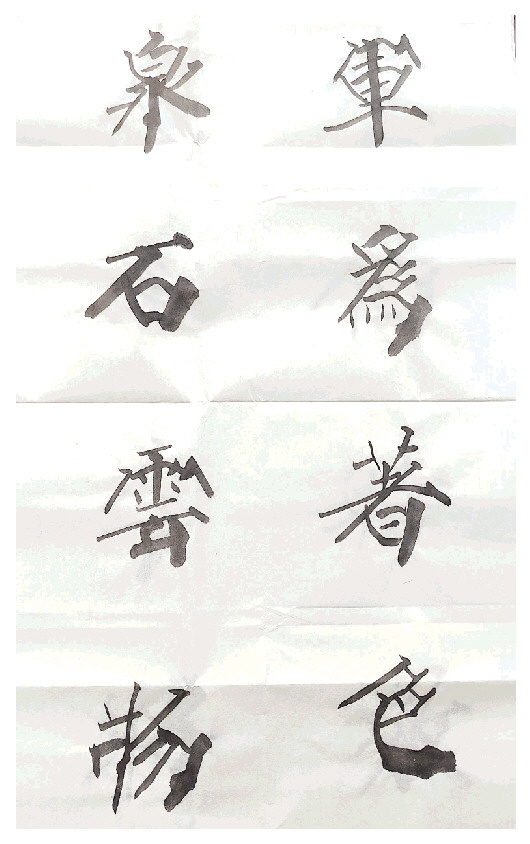 軍為著色
泉石雲物